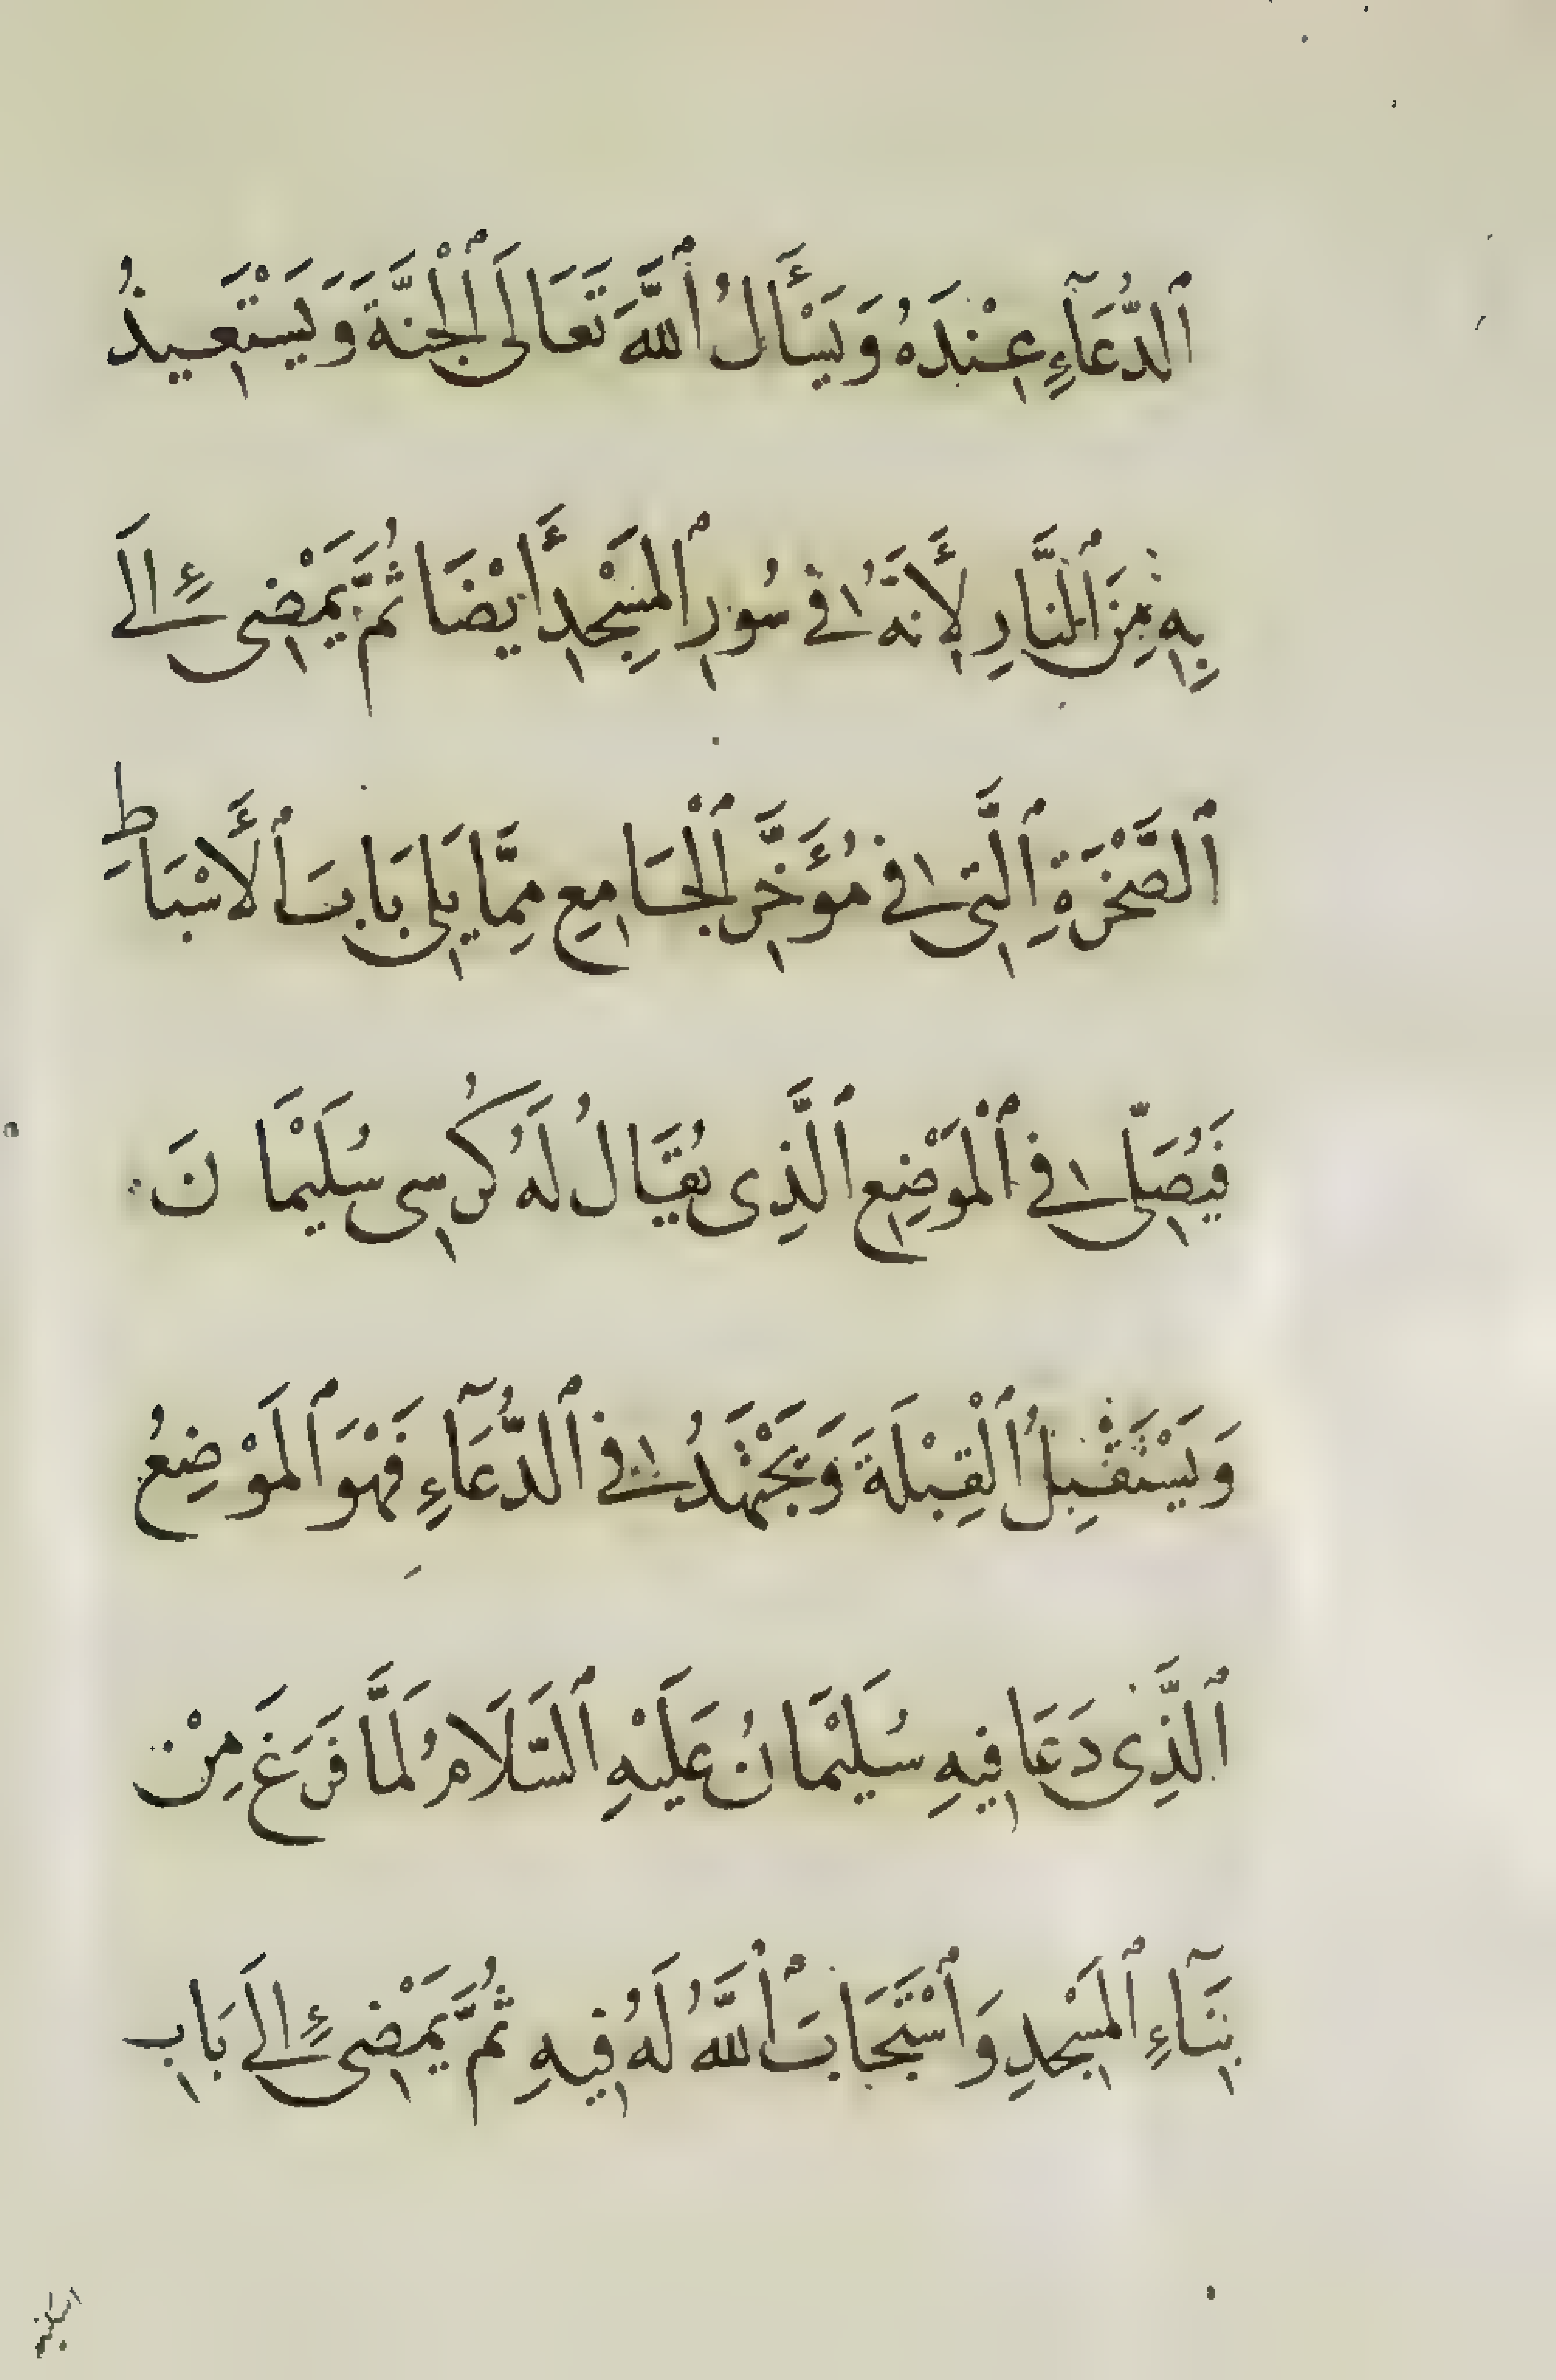 ٱلدُّعَآءِ عِنْدَهُ وَيَسْأَلُ ٱللَّهَ تَعَالَى ٱلْجَنَّةَ وَيَسْتَعِيذُ
بِهِ مِنَ ٱلنَّارِ لِأَنَّهُ فِى سُورِ ٱلمَسْجِدِ أَيْضَا ثُمَّ يَمْضِى إِلَى
ٱلصَّخْرَةِ ٱلَّتِى فِى مُؤَخَّرِ ٱلْجَامِعِ مِمَّا يَلِى بَابَ ٱلأَسْبَاطِ
فَيُصَلِّى فِى ٱلْمَوْضِعِ ٱلَّذِى يُقَالُ لَهُ كُرْسِى سُلَيْمَانَ
وَيَسْتَقْبِلُ ٱلْقِبْلَةَ وَيَجْتَهِدُ فِى ٱلدُّعَآءِ فَهْوَ ٱلمَوْضِعُ
ٱلَّذِى دَعَا فِيهِ سُلَيْمَانُ عَلَيْهِ ٱلسَّلَامُ لَمَّا فَرَغَ مِنْ
بِنَآءِ ٱلمَسْجِدِ وَٱسْتَجَابَ ٱللَّهُ لَهُ فِيهِ ثُمَّ يَمْضِى إِلَى بَابِ